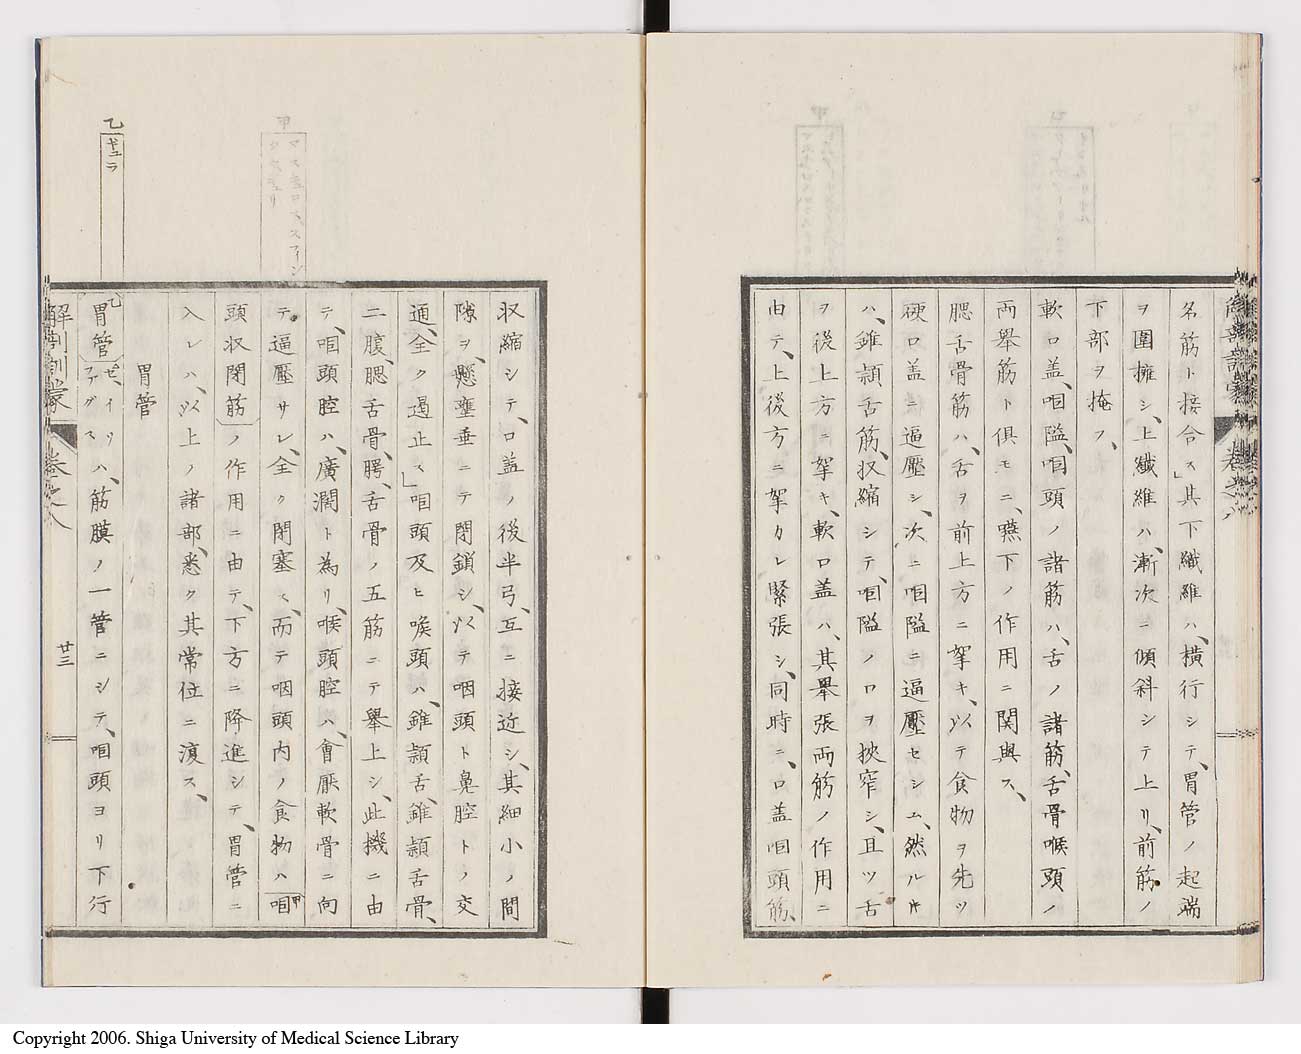 名筋ト接合ス」其下纖維ハ、橫行シテ、胃管ノ起端
ヲ圍擁シ、上纖維ハ、漸次ニ傾斜シテ上リ、前筋ノ
下部ヲ掩フ、
軟口盖、咽隘、咽頭ノ諸筋ハ、舌ノ諸筋、舌骨喉頭ノ
両舉筋ト俱モニ、嚥下ノ作用ニ関與ス、
腮舌骨筋ハ、舌ヲ前上方ニ挐キ、以テ食物ヲ先ツ
硬口盖ニ逼壓シ、次ニ咽隘ニ逼壓セシム、然ル𪜈
ハ、錐顈舌筋、収縮シテ、咽隘ノ口ヲ挾窄シ、且ツ舌
ヲ後上方ニ挐キ、軟口盖ハ、其舉張両筋ノ作用ニ
由テ、上後方ニ挐カレ緊張シ、同時ニ、口盖咽頭筋、
収縮シテ、口盖ノ後半弓、互ニ接近シ、其細小ノ間
隙ヲ、懸壅垂ニテ閉鎖シ、以テ咽頭ト鼻腔トノ交
通、全ク遏止ス」咽頭及ヒ喉頭ハ、錐顈舌、錐顈舌骨、
二腹、腮舌骨、腭舌骨ノ五筋ニテ舉上シ、此機ニ由
テ、咽頭腔ハ、廣濶ト為リ、喉頭腔ハ、會厭軟骨ニ向
テ逼壓サレ、全ク閉塞ス、而テ咽頭内ノ食物ハ甲咽
頭収閉筋ノ作用ニ由テ、下方ニ降進シテ、胃管ニ
入レハ、以上ノ諸部、悉ク其常位ニ復ス、
胃管
乙胃管ゼ、イリハ、筋膜ノ一管ニシテ、咽頭ヨリ下行
ファグス
甲
乙
ギュラ
解剖訓蒙
卷之八
廿三
Copyright 2006. Shiga University of Medical Science Library